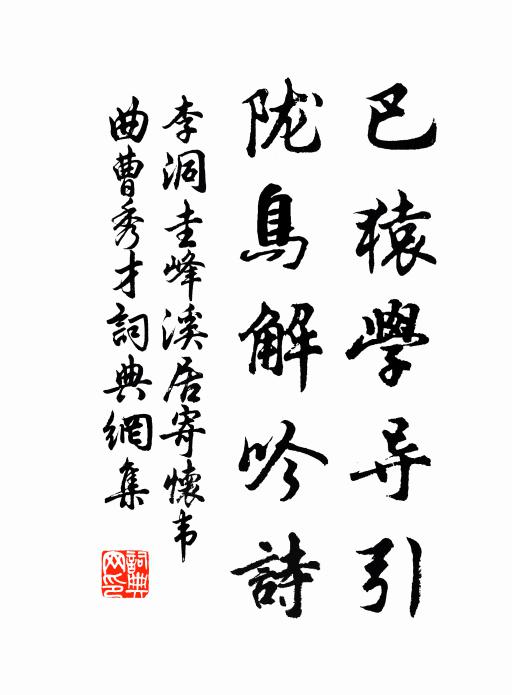 巴猿學导引
陇鳥解吟詩
李洞圭峰溪居寄懷韦
曲曹秀才詞典網集
詞典网印